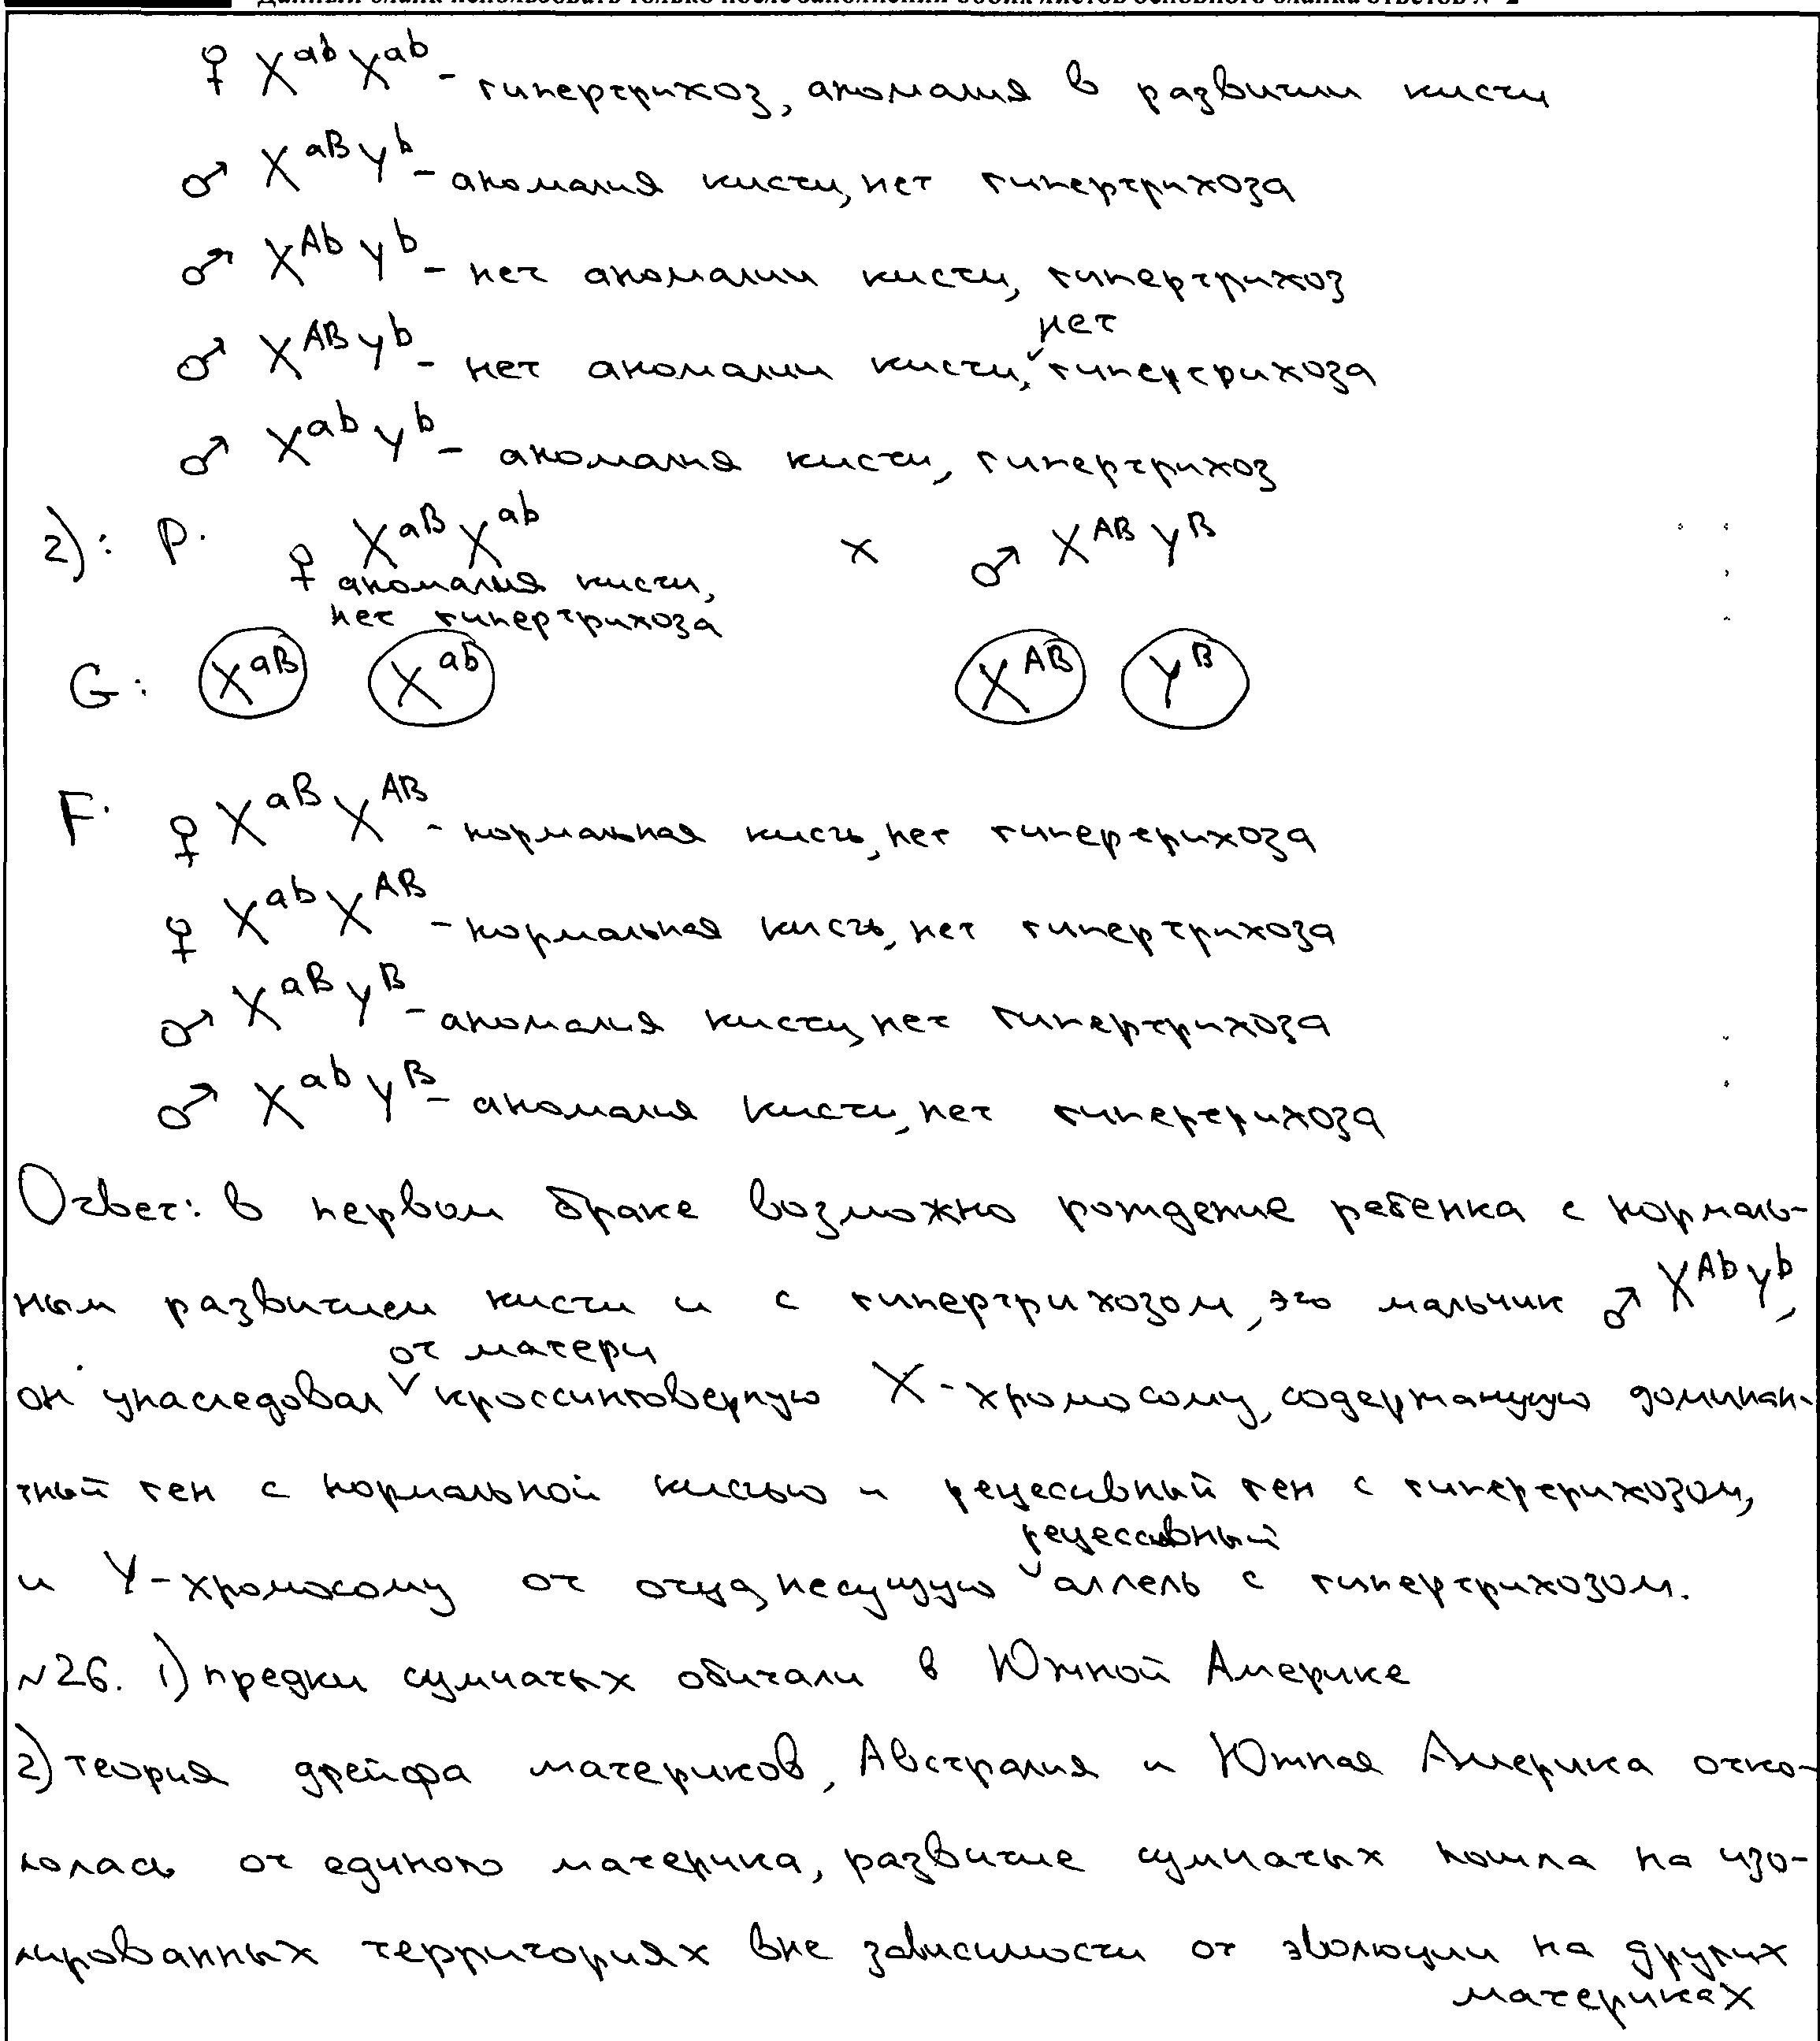 Данный бланк использовать только после заполнения обоих листов основного бланка ответов № 2
♀ X^ab X^ab - гипертрихоз, аномалия в развитии кисти
♂ X^aB Y^b - аномалия кисти, нет гипертрихоза
♂ X^Ab Y^b - нет аномалии кисти, гипертрихоз
♂ X^AB Y^b - нет аномалии кисти, ˅нет гипертрихоза
♂ X^ab Y^b - аномалия кисти, гипертрихоз
2): P. ♀ X^aB X^ab x ♂ X^AB Y^B
аномалия кисти,
нет гипертрихоза
G: X^aB X^ab X^AB Y^B
F. ♀ X^aB X^AB - нормальная кисть, нет гипертрихоза
♀ X^ab X^AB - нормальная кисть, нет гипертрихоза
♂ X^aB Y^B - аномалия кисти, нет гипертрихоза
♂ X^ab Y^B - аномалия кисти, нет гипертрихоза
Ответ: в первом браке возможно рождение ребенка с нормаль-
ным развитием кисти и с гипертрихозом, это мальчик ♂ X^Ab Y^b,
он унаследовал ˅от матери кроссинговерную X-хромосому, содержащую доминан-
тный ген с нормальной кистью и рецессивный ген с гипертрихозом,
и Y-хромосому от отца, несущую ˅рецессивный аллель с гипертрихозом.
№26. 1) предки сумчатых обитали в Южной Америке
2) теория дрейфа материков, Австралия и Южная Америка отко-
лолась от единого материка, развитие сумчатых пошла на изо-
лированных территориях вне зависимости от эволюции на других
материках